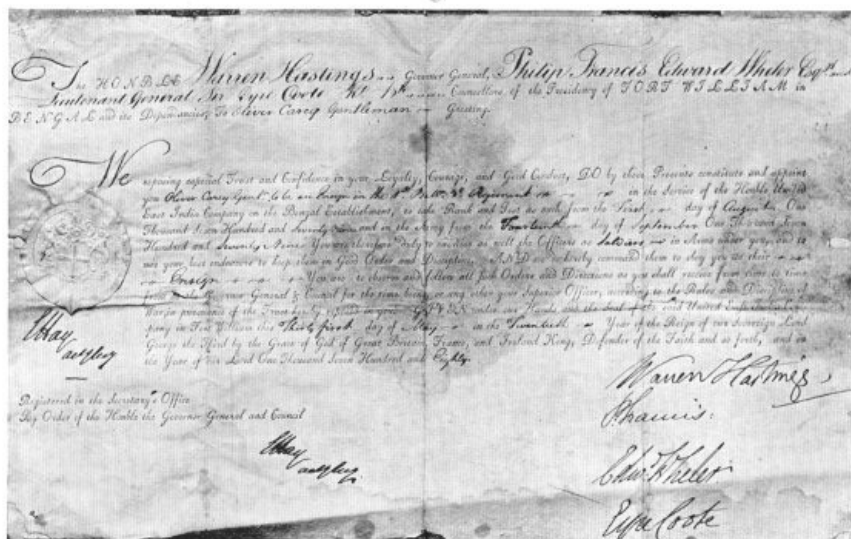 The HONBLE Warren Hastings Governor General, Philip Francis Edward Wheler Esqrs. and
Lieutenant General Sir Eyre Coote Kt. Bth. Councellors of the Presidency of FORT WILLIAM in
BENGAL and its Dependancies, To Oliver Carey Gentleman Greeting.
We reposing especial Trust and Confidence in your Loyalty, Courage, and Good Conduct, DO by these Presents constitute and appoint
you Oliver Carey Gent. to be an Ensign in the Regiment in the Service of the Honble United
East India Company on the Bengal Establishment, to take Rank and Post as such from the First day of August One
Thousand Seven Hundred and Seventy and in the Army from the Fourteenth day of September One Thousand Seven
Hundred and Seventy Nine You are therefore duly to exercise as well the Officers as Soldiers in Arms under you, and to
use your best endeavors to keep them in Good Order and Discipline, AND we hereby command them to obey you as their
Ensign You are to observe and follow all such Orders and Directions as you shall receive from time to time
from the Governor General & Council for the time being, or any other your Superior Officer, according to the Rules and Discipline of
War in pursuance of the Trust hereby reposed in you. GIVEN under our Hands and the Seal of the said United East India Com
pany in Fort William this Thirty first day of May in the Twentieth Year of the Reign of our Sovereign Lord
George the Third by the Grace of God of Great Britain, France, and Ireland King, Defender of the Faith and so forth, and in
the Year of our Lord One Thousand Seven Hundred and Eighty
EHay
Warren Hastings
Registered in the Secretary's Office
By Order of the Honble the Governor General and Council
P. Francis.
EHay
Edwd. Wheler
Eyre Coote